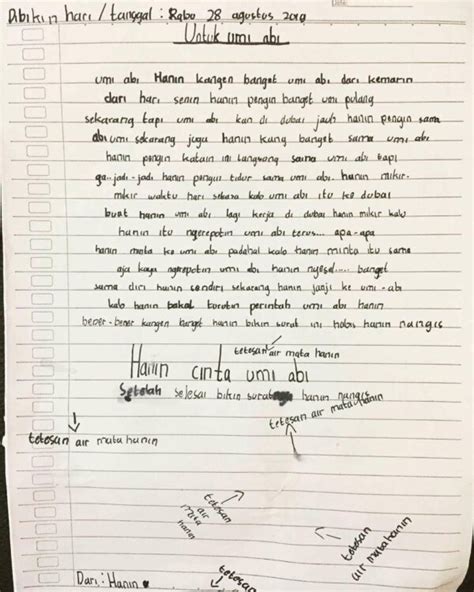 Date:
Dibikin hari / tanggal : Rabu 28 agustus 2019
Untuk umi abi
umi abi Hanin kangen banget umi abi dari kemarin
dari hari senin hanin pengin banget umi pulang
sekarang tapi umi abi kan di dubai jauh hanin pengin sama
abi umi sekarang juga hanin kang banget sama umi abi
hanin pengin katain ini langsung sama umi abi tapi
ga-jadi-jadi hanin pengin tidur sama umi abi. hanin mikir-
mikir waktu hari selasa kalo umi abi itu ke dubai
buat hanin umi abi lagi kerja di dubai hanin mikir kalo
hanin itu ngerepotin umi abi terus... apa-apa
hanin minta ke umi abi padahal kalo hanin minta itu sama
aja kaya ngerepotin umi abi hanin nyesel..... banget
sama diri hanin sendiri sekarang hanin janji ke umi-abi
kalo hanin bakal turutin perintah umi abi hanin
bener-bener kangen banget hanin bikin surat ini habis hanin nangis
tetesan air mata hanin
Hanin cinta umi abi
Setelah selesai bikin surat hanin nangis
tetesan air mata hanin
tetesan air mata hanin
tetesan
air
mata
hanin
tetesan
air mata hanin
Dari : Hanin
tetesan